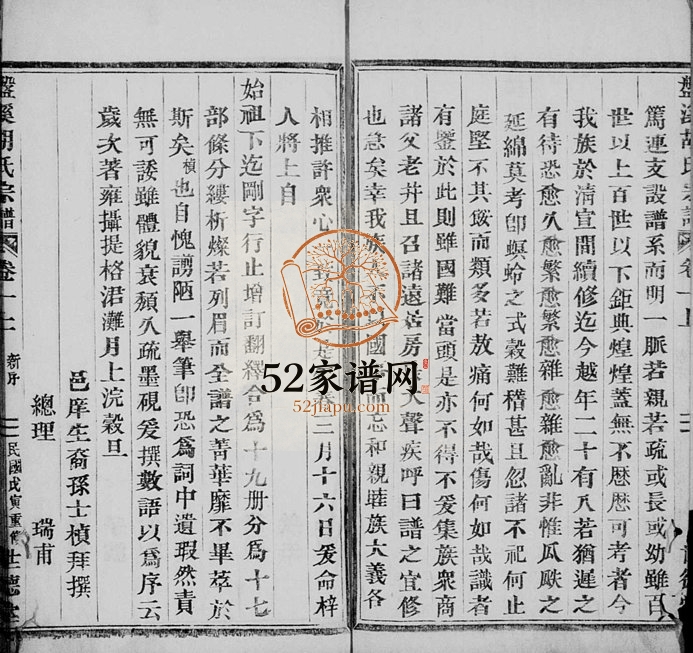 篤連支設譜系而明一脈若親若疏或長或幼雖百
世以上百世以下鉅典煌煌蓋無不歷歷可考者今
我族於淸宣開續修迄今越年二十有八若猶遲之
有待恐愈久愈繁愈繁愈雜愈雜愈亂非惟瓜瓞之
延綿莫考卽螟蛉之式穀難稽甚且忽諸不祀何止
庭堅不其餒而類多若敖痛何如哉傷何如哉識者
有鑒於此則雖國難當頭是亦不得不爰集族衆商
諸父老幷且召諸遠居房 大聲疾呼曰譜之宜修
也急矣幸我族 不 國 而忘和親睦族大義各
相推許衆心 是 二月十六日爰命梓
人將上自
始祖下迄剛字行止增訂翻繹合爲十九册分爲十七
部條分縷析燦若列眉而全譜之菁華靡不畢萃於
斯矣楨也自愧謭陋一舉筆卽恐爲詞中遺瑕然責
無可諉雖體貌衰頹久疏墨硯爰撰數語以爲序云
歲次著雍攝提格涒灘月上浣穀旦
邑庠生裔孫士楨拜撰
總理 瑞甫
盤溪胡氏宗譜 卷一上 新序 民國戊寅重修 士德堂
52家谱网
52jiapu.com